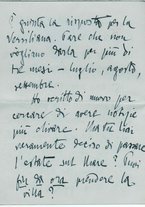 È questa la risposta per la
Versiliana. Pare che non
vogliono darla per più di
tre mesi – luglio, agosto,
settembre.
Ho scritto di nuovo per
cercare di avere notizie
più chiare. Ma tu hai
veramente deciso di passare
l'estate sul Mare? Vuoi
fin da ora prendere la
villa?